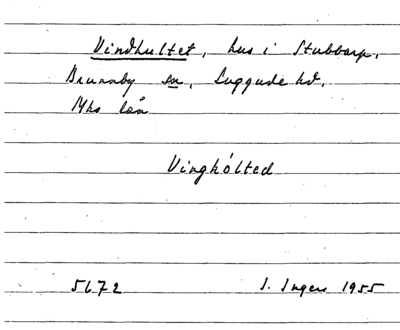 Vindhultet, hus i Stubbarp,
Brunnby sn, Luggude hd.
Mhs län
Vinghólted
5672 I. Ingers 1955